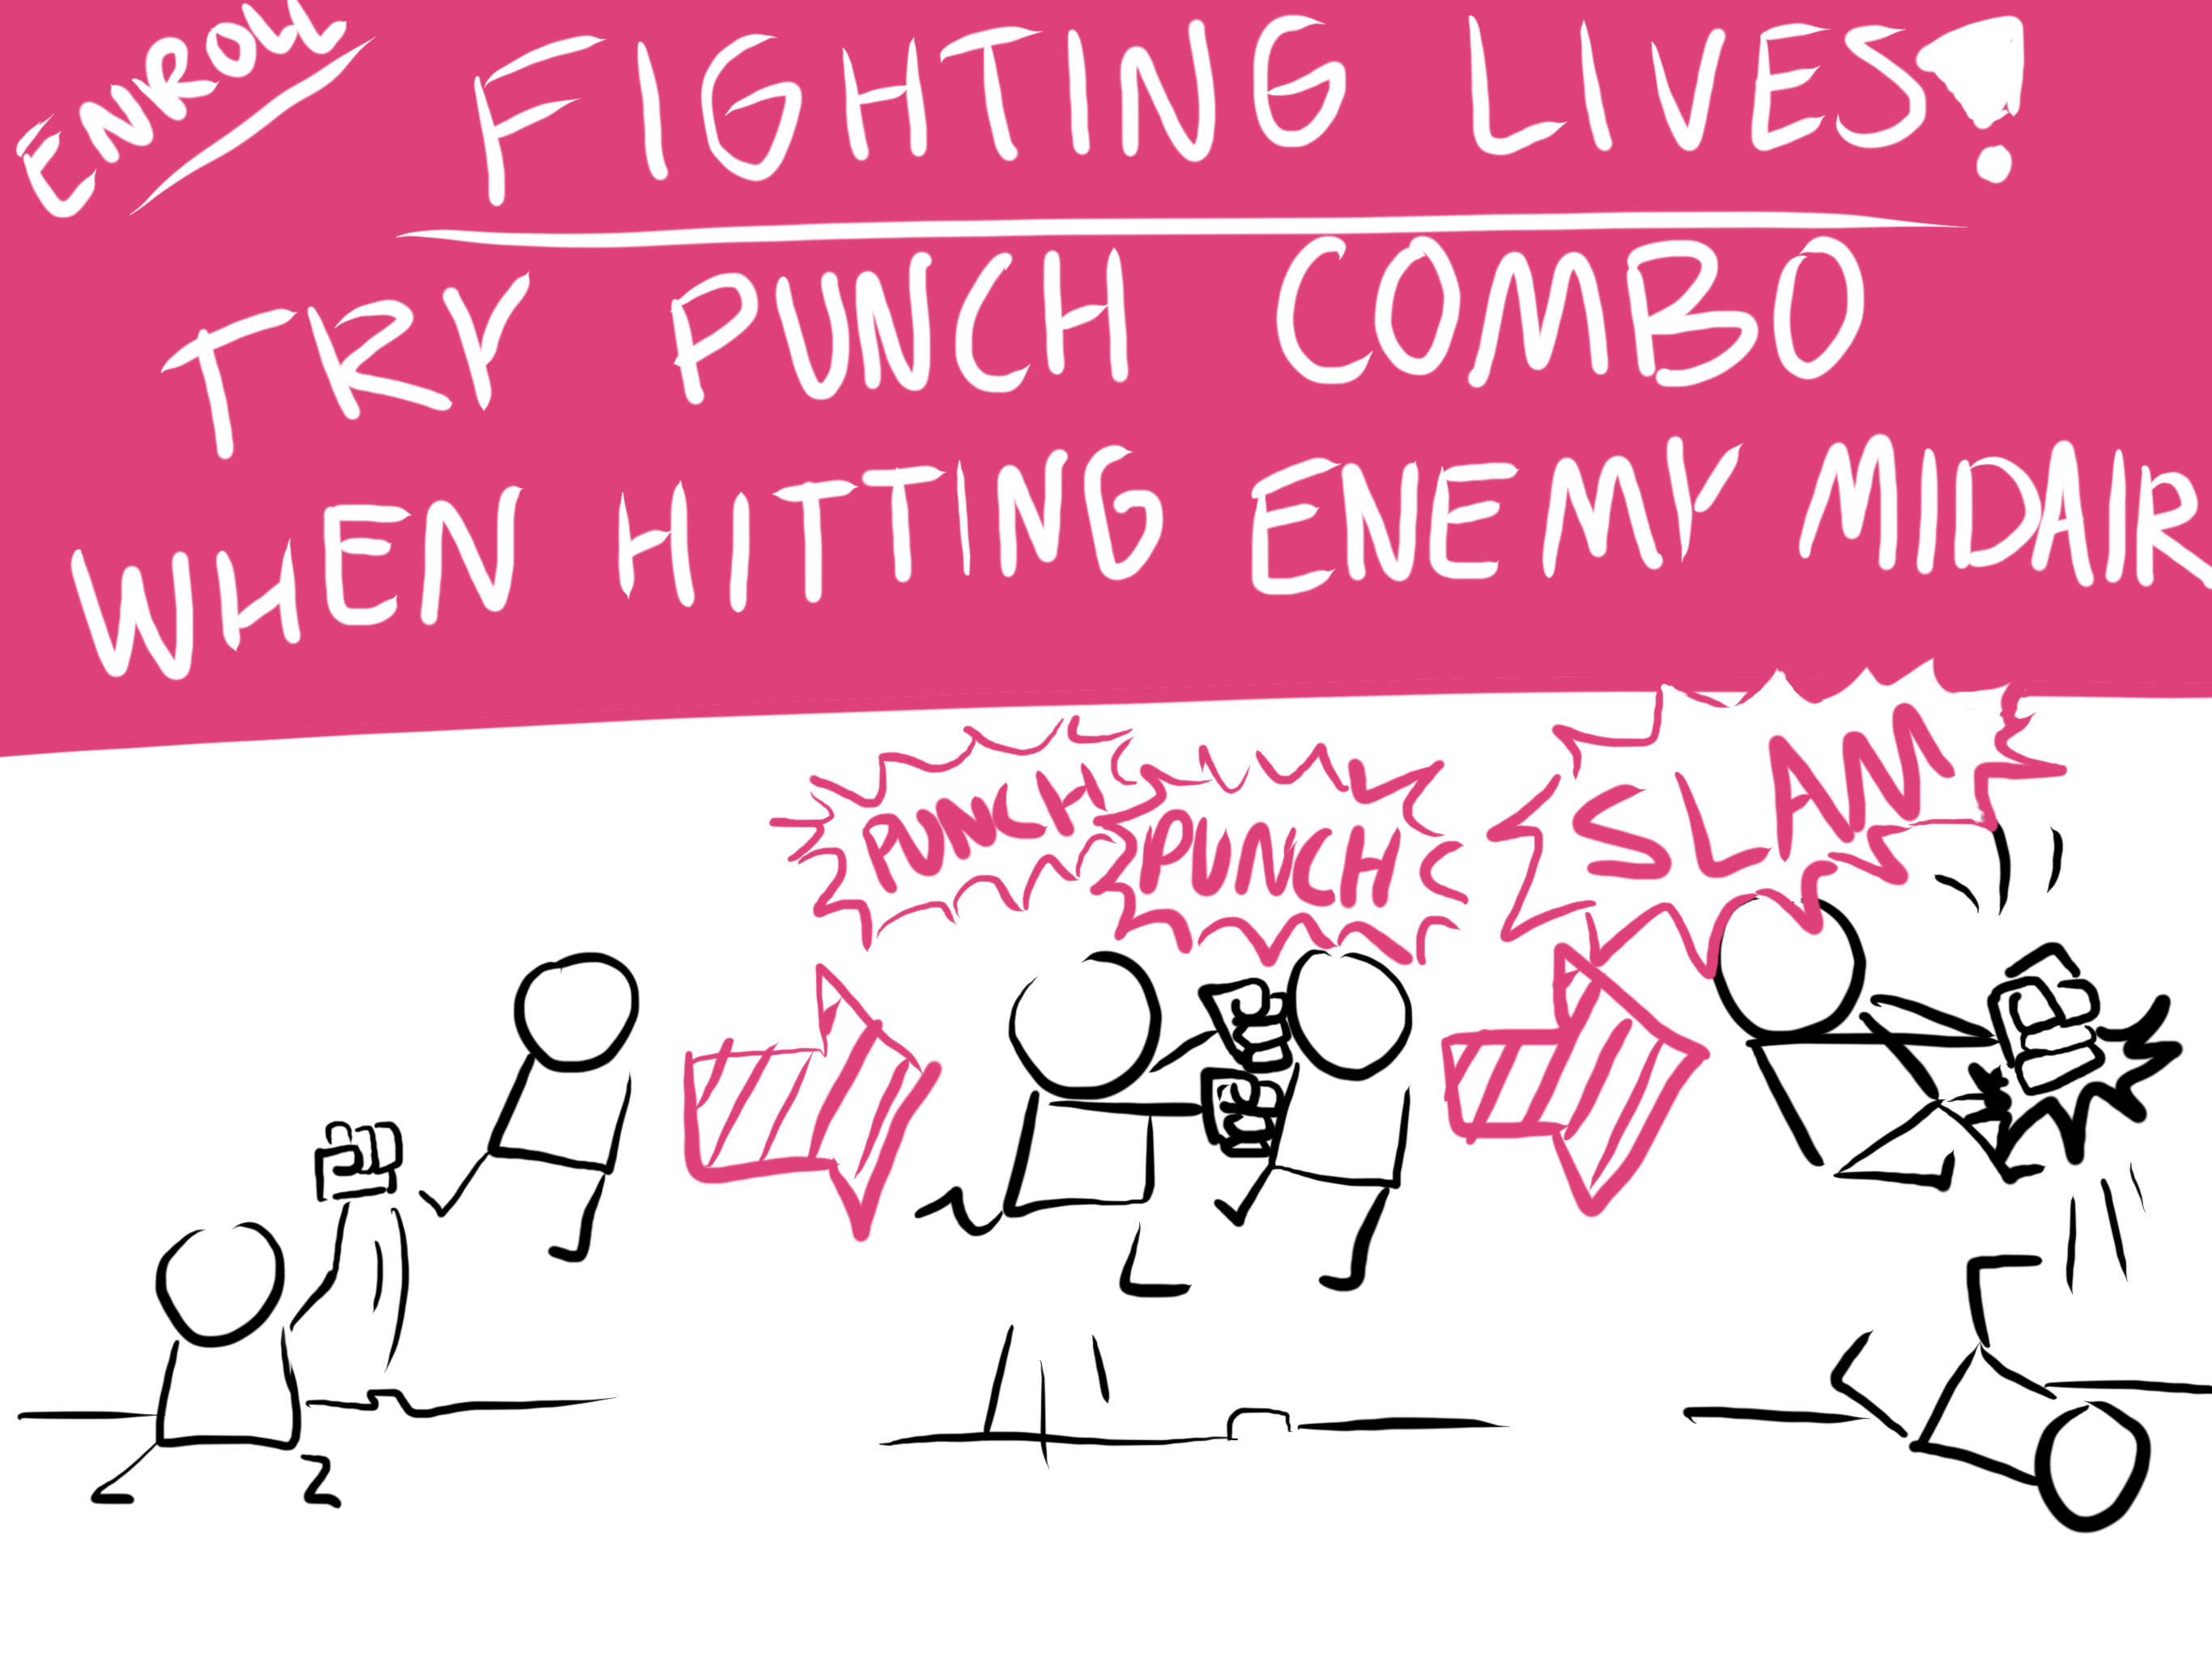 ENROLL
FIGHTING LIVES!
TRY PUNCH COMBO
WHEN HITTING ENEMY MIDAIR
PUNCH
PUNCH
SLAM